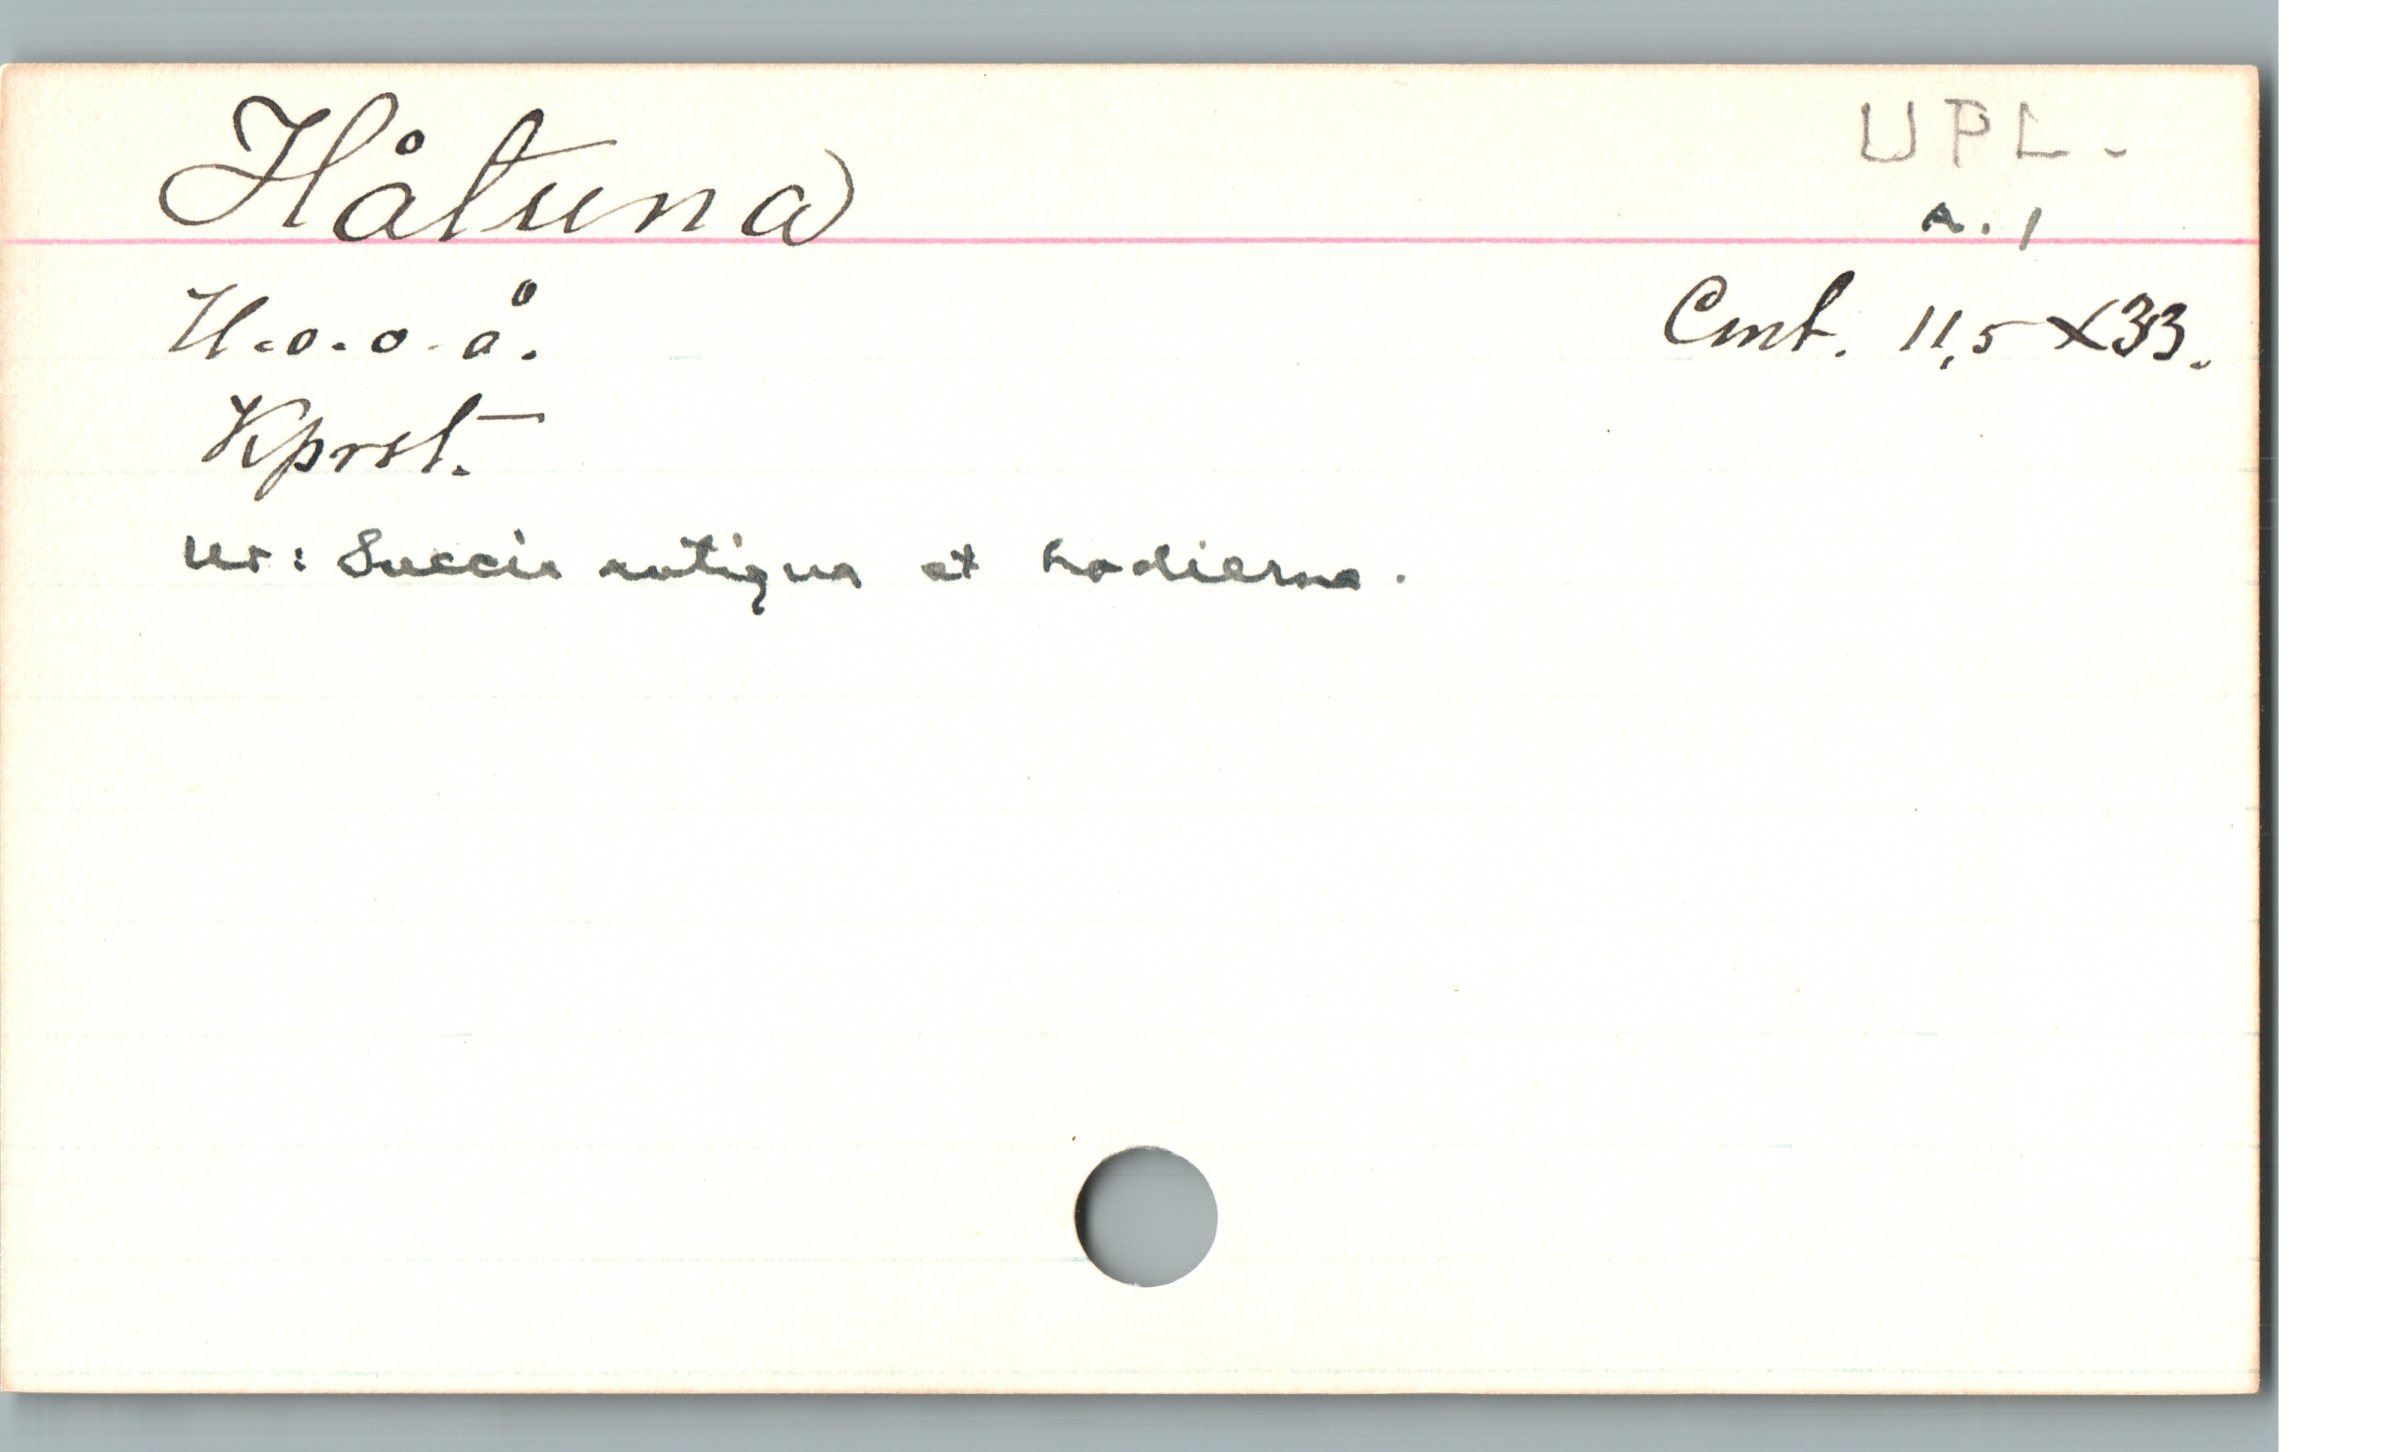 Håtuna
UPL.
A.1
U.o.o.å.
Cmt. 11,5 X 33.
Kprst.
Ur: Suecia antiqua et hodierna.